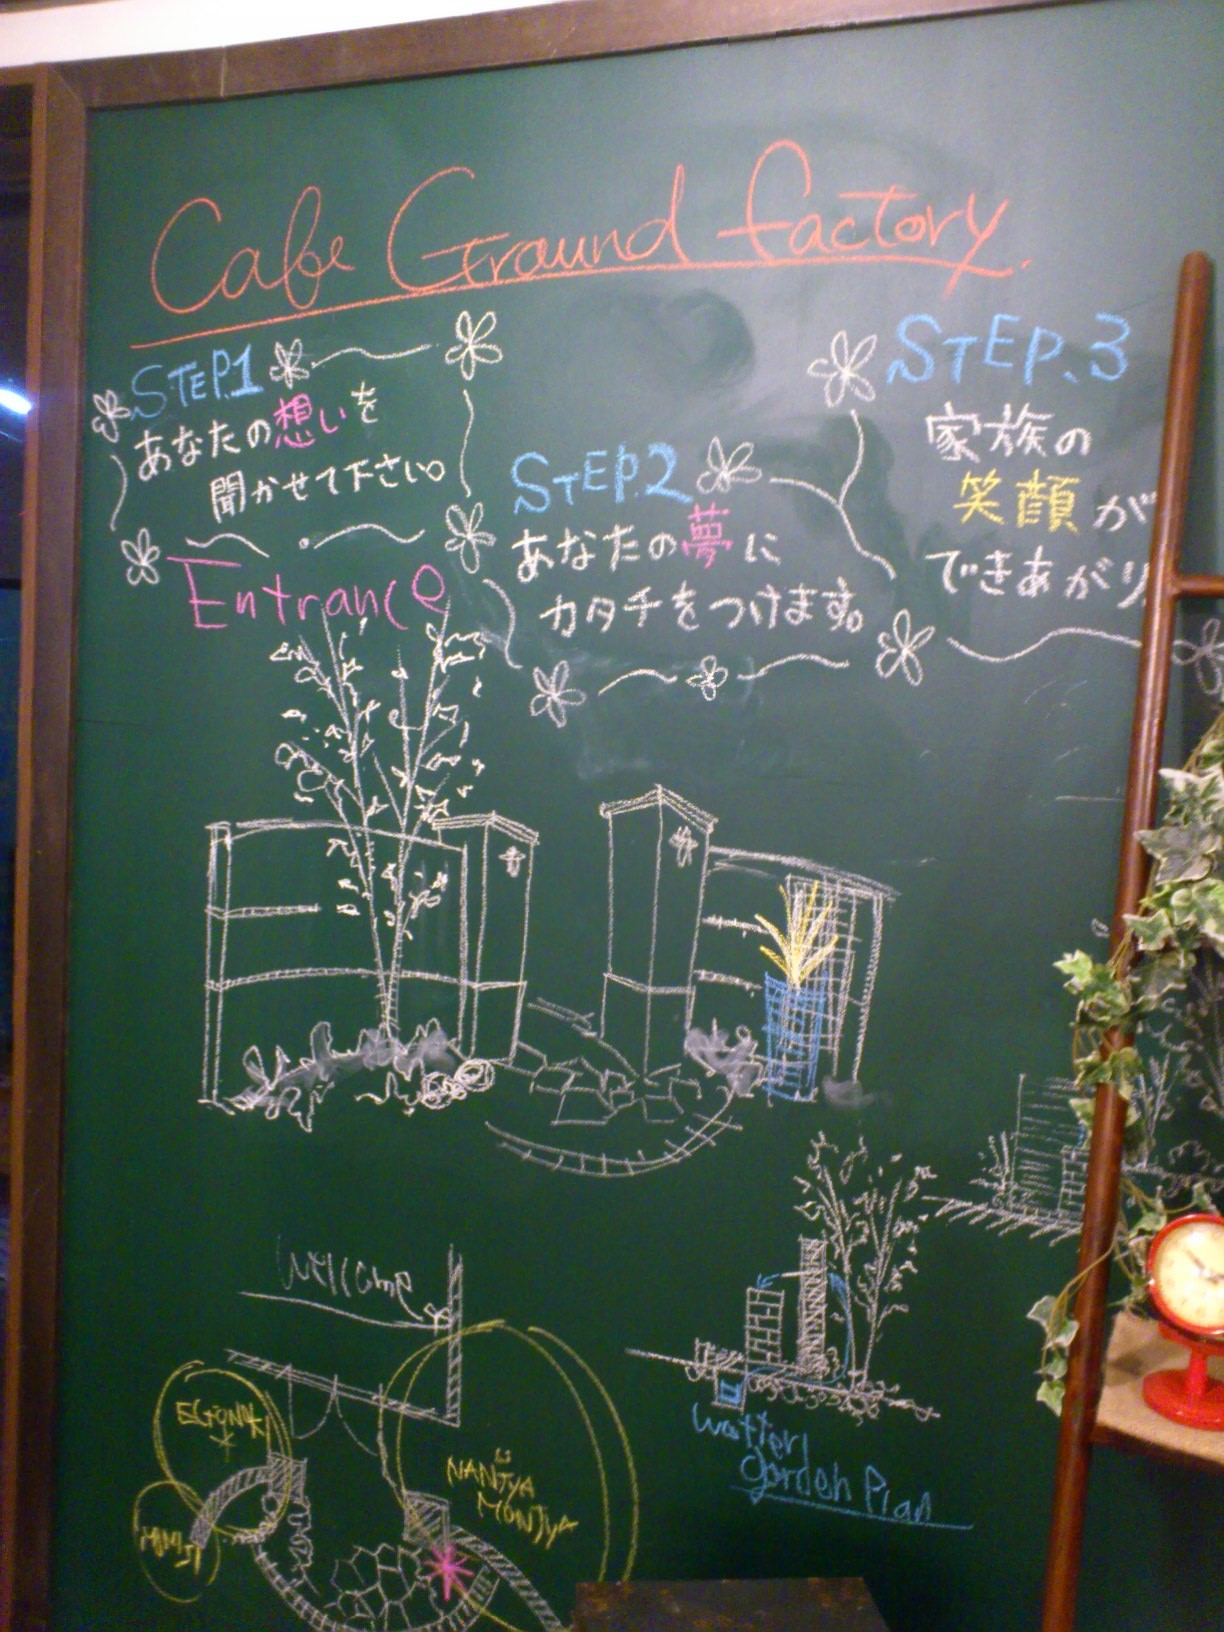 Cafe Graund factory.
STEP.1
あなたの想いを
聞かせて下さい。
STEP.2
あなたの夢に
カタチをつけます。
STEP.3
家族の
笑顔が
できあがり
Entrance
Welcome
EGONOKI
MIMIJI
NANJYA
MONJYA
Watter
garden Plan